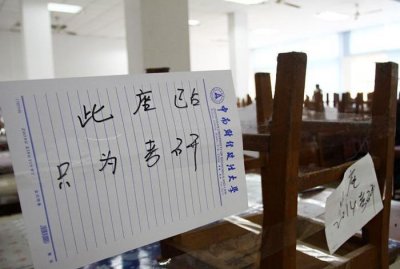 此座已占
只为考研
中南财经政法大学